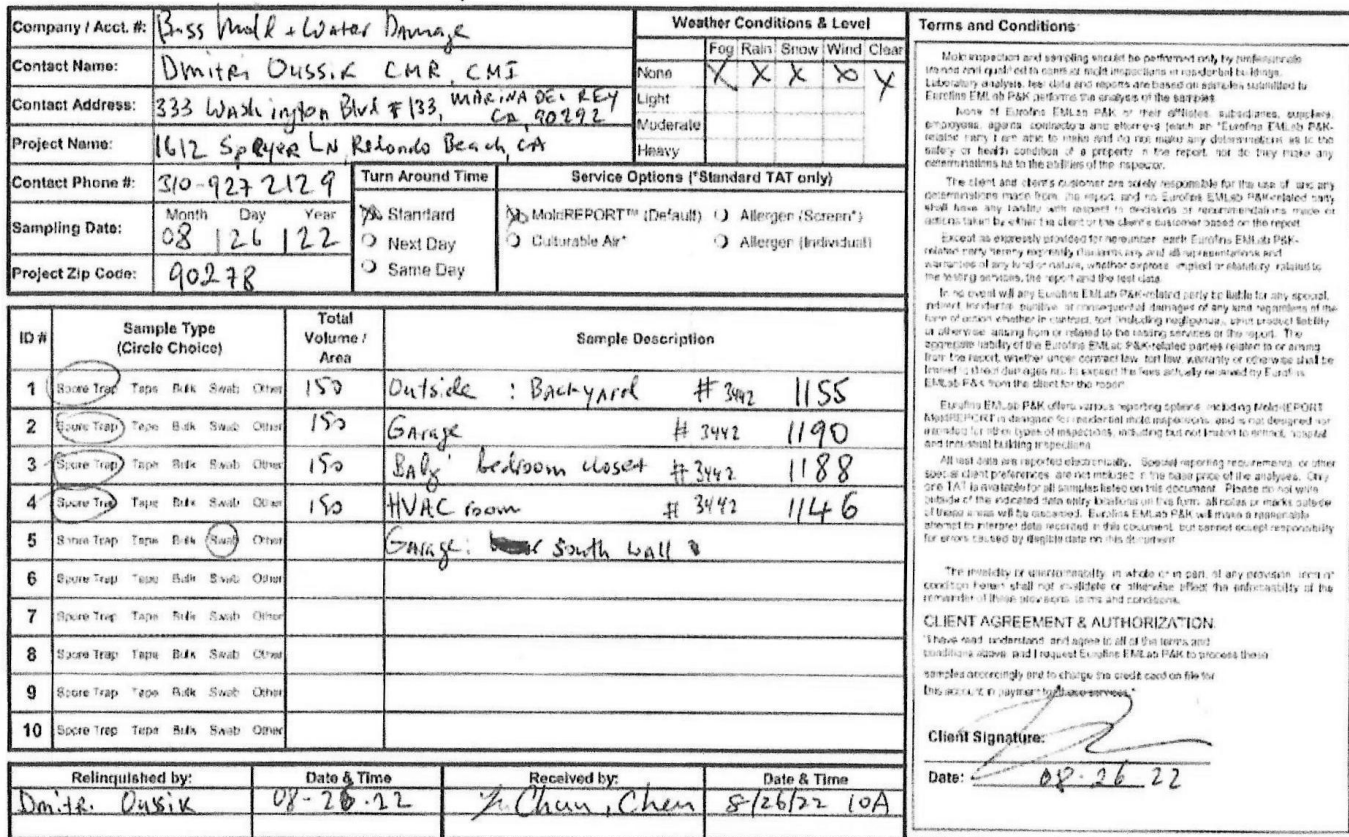 Company / Acct. #: Boss Mold + Water Damage
Contact Name: Dmitri Oussik CMR, CMI
Contact Address: 333 Washington Blvd # 133, MARINA DEL REY CA, 90292
Project Name: 1612 Spreyer LN, Redondo Beach, CA
Contact Phone #: 310-927 2129
Sampling Date: Month Day Year
08 | 26 | 22
Project Zip Code: 90278
Turn Around Time
X Standard
Next Day
Same Day
Weather Conditions & Level
Fog Rain Snow Wind Clear
None X X X X X
Light
Moderate
Heavy
Service Options (*Standard TAT only)
X MoldREPORT™ (Default) Allergen (Screen*)
Culturable Air* Allergen (Individual)
ID # Sample Type (Circle Choice) Total Volume / Area Sample Description
1 Spore Trap Tape Bulk Swab Other 150 Outside : Backyard # 3442 1155
2 Spore Trap Tape Bulk Swab Other 150 Garage # 3442 1190
3 Spore Trap Tape Bulk Swab Other 150 bedroom closet # 3442 1188
4 Spore Trap Tape Bulk Swab Other 150 HVAC room # 3442 1146
5 Spore Trap Tape Bulk Swab Other Garage: South wall
6 Spore Trap Tape Bulk Swab Other
7 Spore Trap Tape Bulk Swab Other
8 Spore Trap Tape Bulk Swab Other
9 Spore Trap Tape Bulk Swab Other
10 Spore Trap Tape Bulk Swab Other
Relinquished by: Date & Time Received by: Date & Time
Dmitri Oussik 08-26-22 Chun, Chen 8/26/22 10A
Terms and Conditions
Mold inspection and sampling should be performed only by professionals
license and qualified to conduct mold inspections in residential buildings.
Laboratory analysis, test data and reports are based on samples submitted to
Eurofins EMLab P&K performs the analysis of the samples.
None of Eurofins EMLab P&K or their affiliates, subsidiaries, suppliers,
employees, agents, contractors and attorneys (each an "Eurofins EMLab P&K-
related party") are able to make and do not make any determinations as to the
safety or health condition of a property in the report, nor do they make any
determinations as to the abilities of the inspector.
The client and client's customer are solely responsible for the use of, and any
determinations made from, the report, and no Eurofins EMLab P&K-related party
shall have any liability with respect to decisions or recommendations made or
actions taken by either the client or the client's customer based on the report.
Except as expressly provided for hereunder, each Eurofins EMLab P&K-
related party hereby expressly disclaims any and all representations and
warranties of any kind or nature, whether express, implied or statutory, related to
the testing services, the report and the test data.
In no event will any Eurofins EMLab P&K-related party be liable for any special,
indirect, incidental, punitive, or consequential damages of any kind regardless of the
form of action whether in contract, tort (including negligence), strict product liability
or otherwise, arising from or related to the testing services or the report. The
aggregate liability of the Eurofins EMLab P&K-related parties related to or arising
from the report, whether under contract law, tort law, warranty or otherwise shall be
limited to direct damages not to exceed the fees actually received by Eurofins
EMLab P&K from the client for the report.
Eurofins EMLab P&K offers various reporting options, including MoldREPORT.
MoldREPORT is designed for residential mold inspections, and is not designed nor
intended for other types of inspections, including but not limited to school, hospital
and industrial building inspections.
All test data are reported electronically. Special reporting requirements, or other
special client preferences, are not included in the base price of the analyses. Only
one TAT is available for all samples listed on this document. Please do not write
outside of the indicated data entry locations on this form, all notes or marks outside
of these areas will be discarded. Eurofins EMLab P&K will make a reasonable
attempt to interpret data recorded in this document, but cannot accept responsibility
for errors caused by illegible data on this document.
The invalidity or unenforceability, in whole or in part, of any provision, term or
condition herein shall not invalidate or otherwise affect the enforceability of the
remainder of these provisions, terms and conditions.
CLIENT AGREEMENT & AUTHORIZATION:
"I have read, understand, and agree to all of the terms and
conditions above, and I request Eurofins EMLab P&K to process these
samples accordingly and to charge the credit card on file for
this account in payment for these services."
Client Signature:
Date: 08-26 22